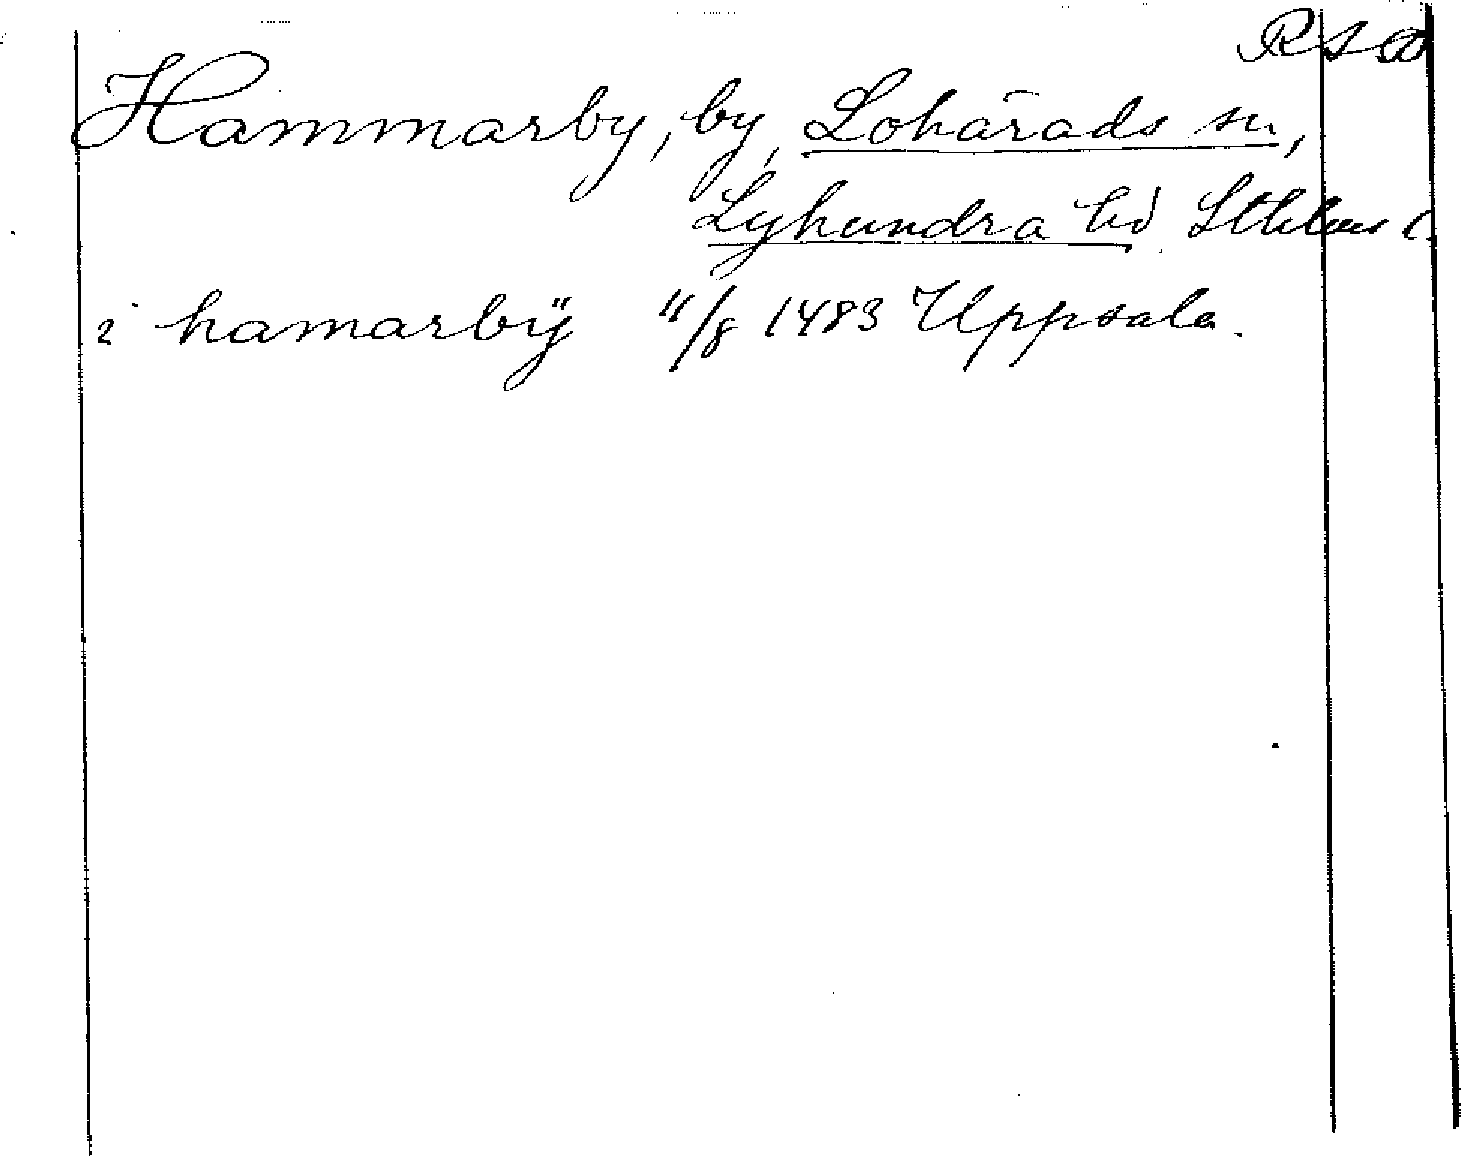 RSD
Hammarby, by, Lohärads sn,
Lyhundra hd Sthlms l.
i hamarbÿ 11/8 1483 Uppsala.